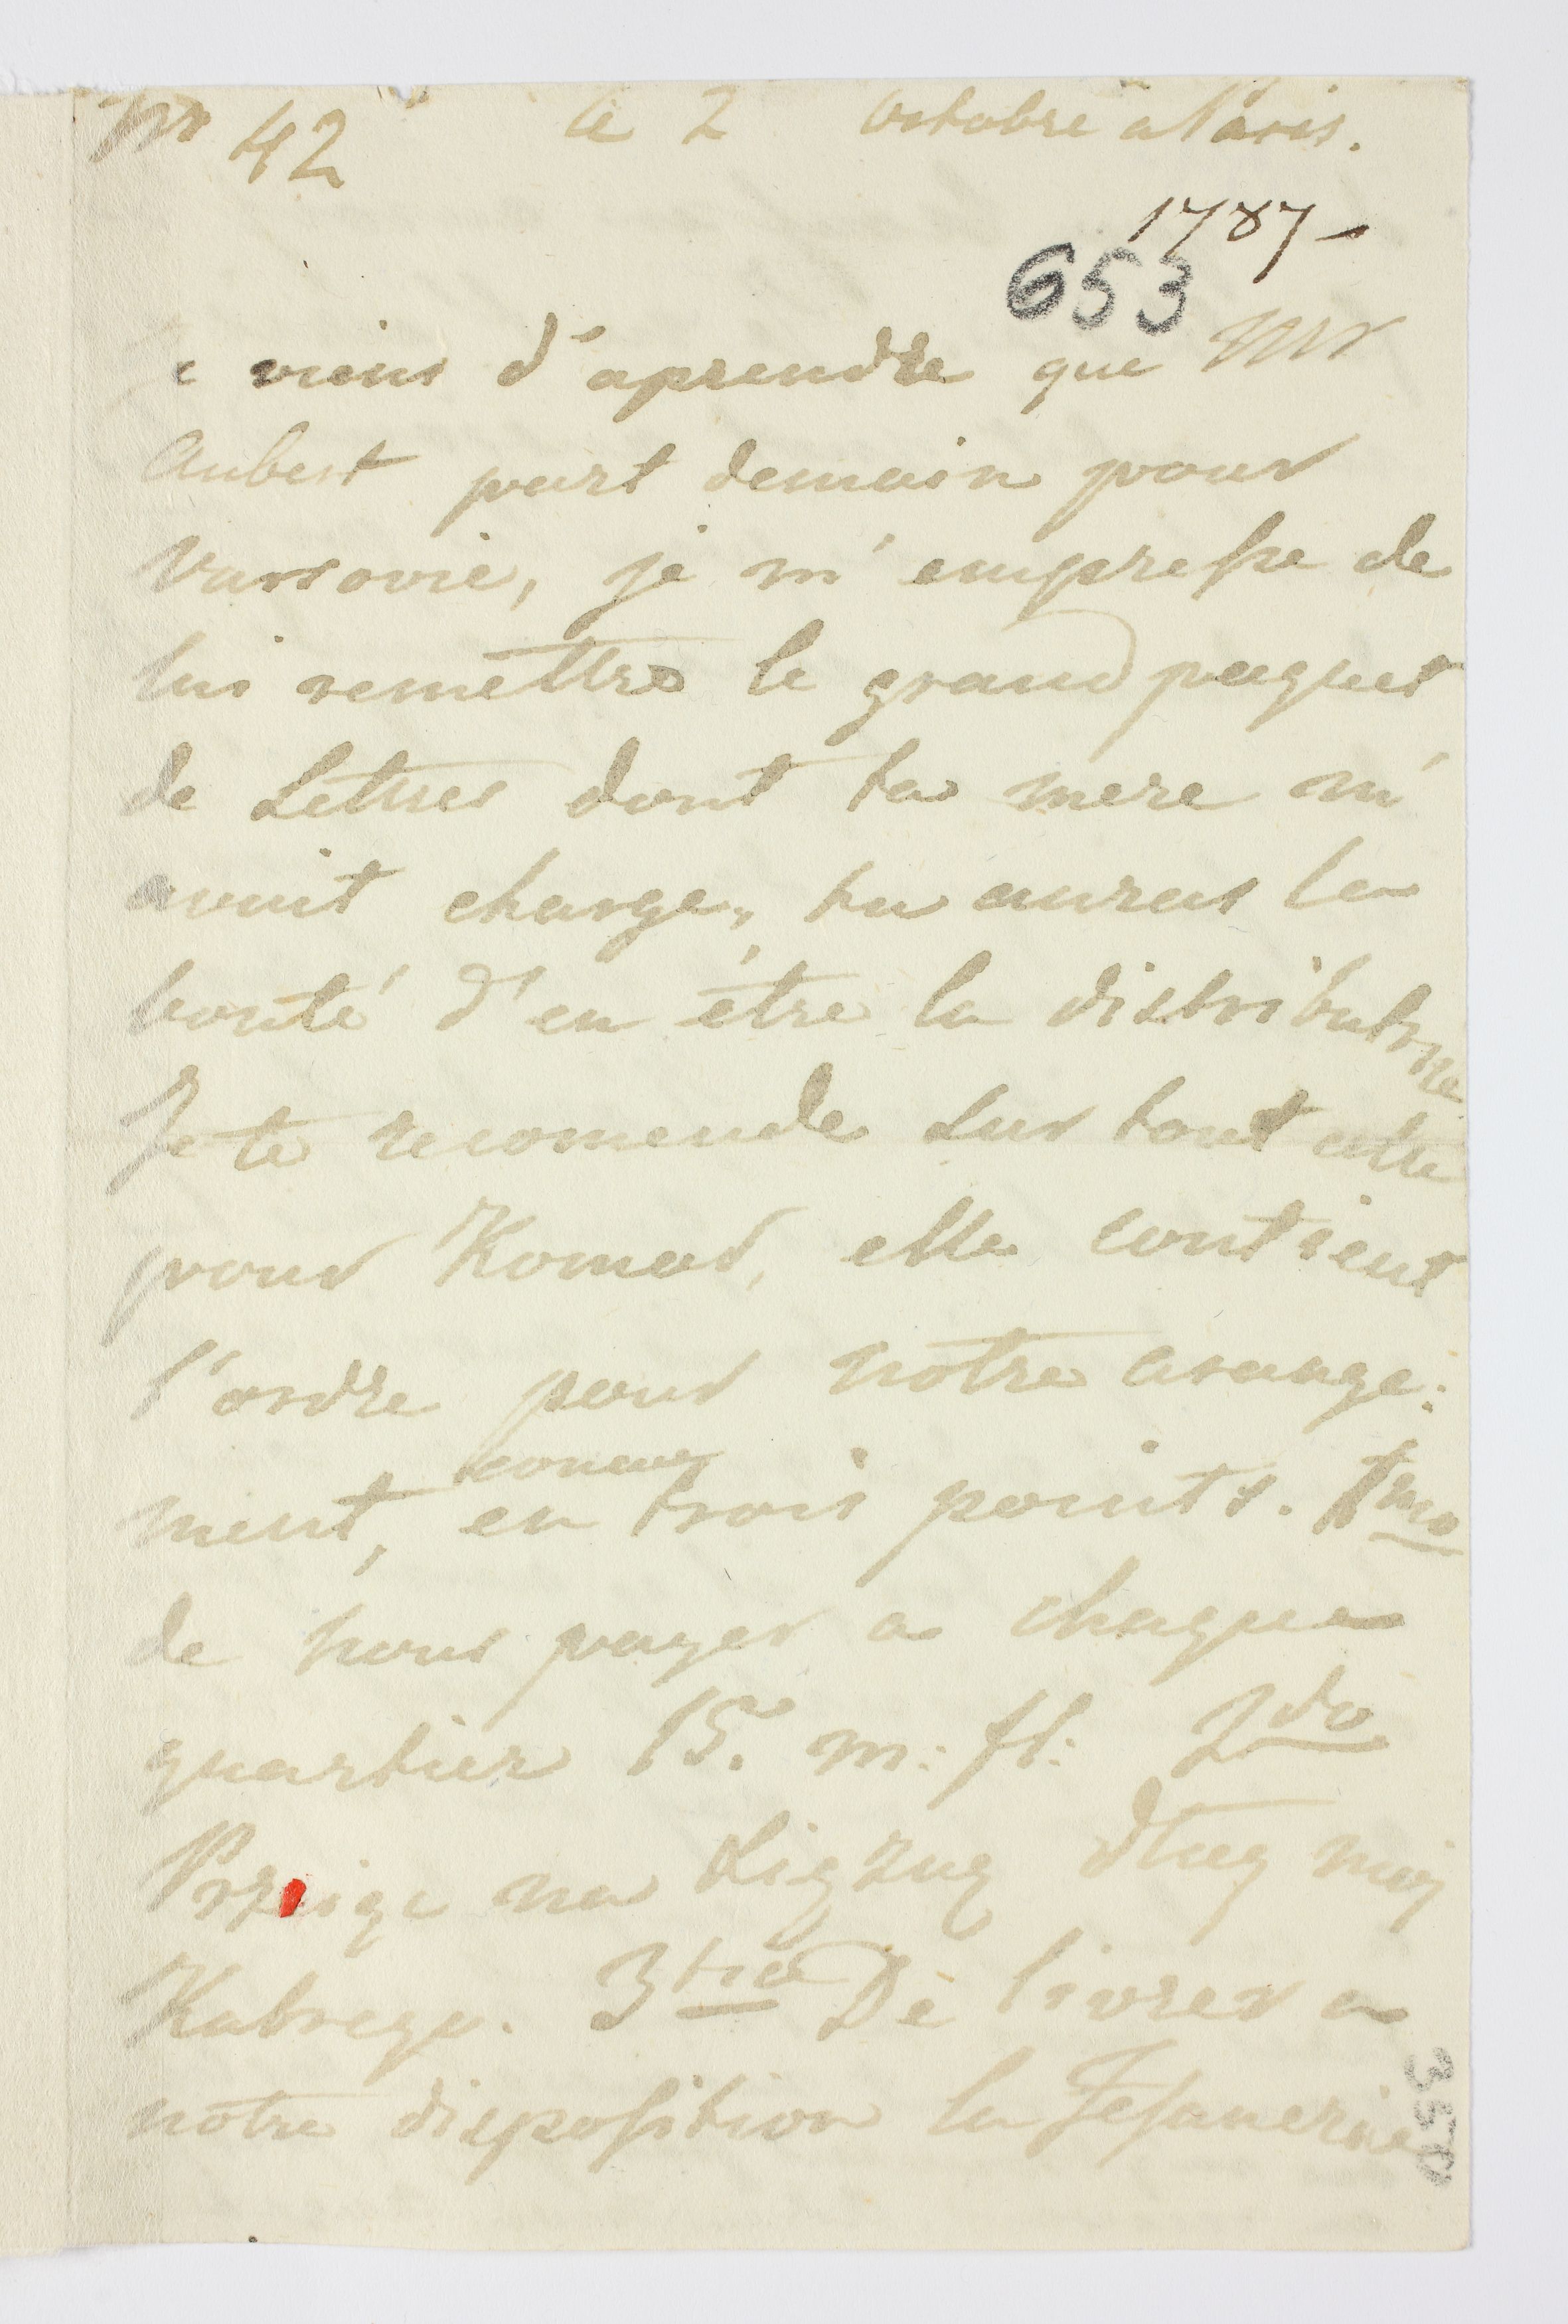 Nr 42 le 2 octobre a Paris.
1787 -
653
Je viens d'aprendre que Mr
Aubert part demain pour
Varsovie, je m'empresse de
lui remettre le grand paquet
de Lettres dont ta mere m'
avait charge, tu auras la
bonté d'en être la distributrice
Je te recomende sur tout celle
pour Komar, elle contient
l'ordre pour notre arange:
ment, conçu
en trois points. 1mo
de nous payer a chaque
quartier 15. m: fl: 2do
na dlug moy
3tio De livrer a
notre disposition la Fesanerie
350